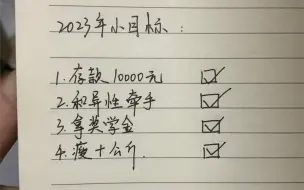 2023年小目标：
1.存款10000元 ☑
2.和异性牵手 ☑
3.拿奖学金 ☑
4.瘦十公斤. ☑